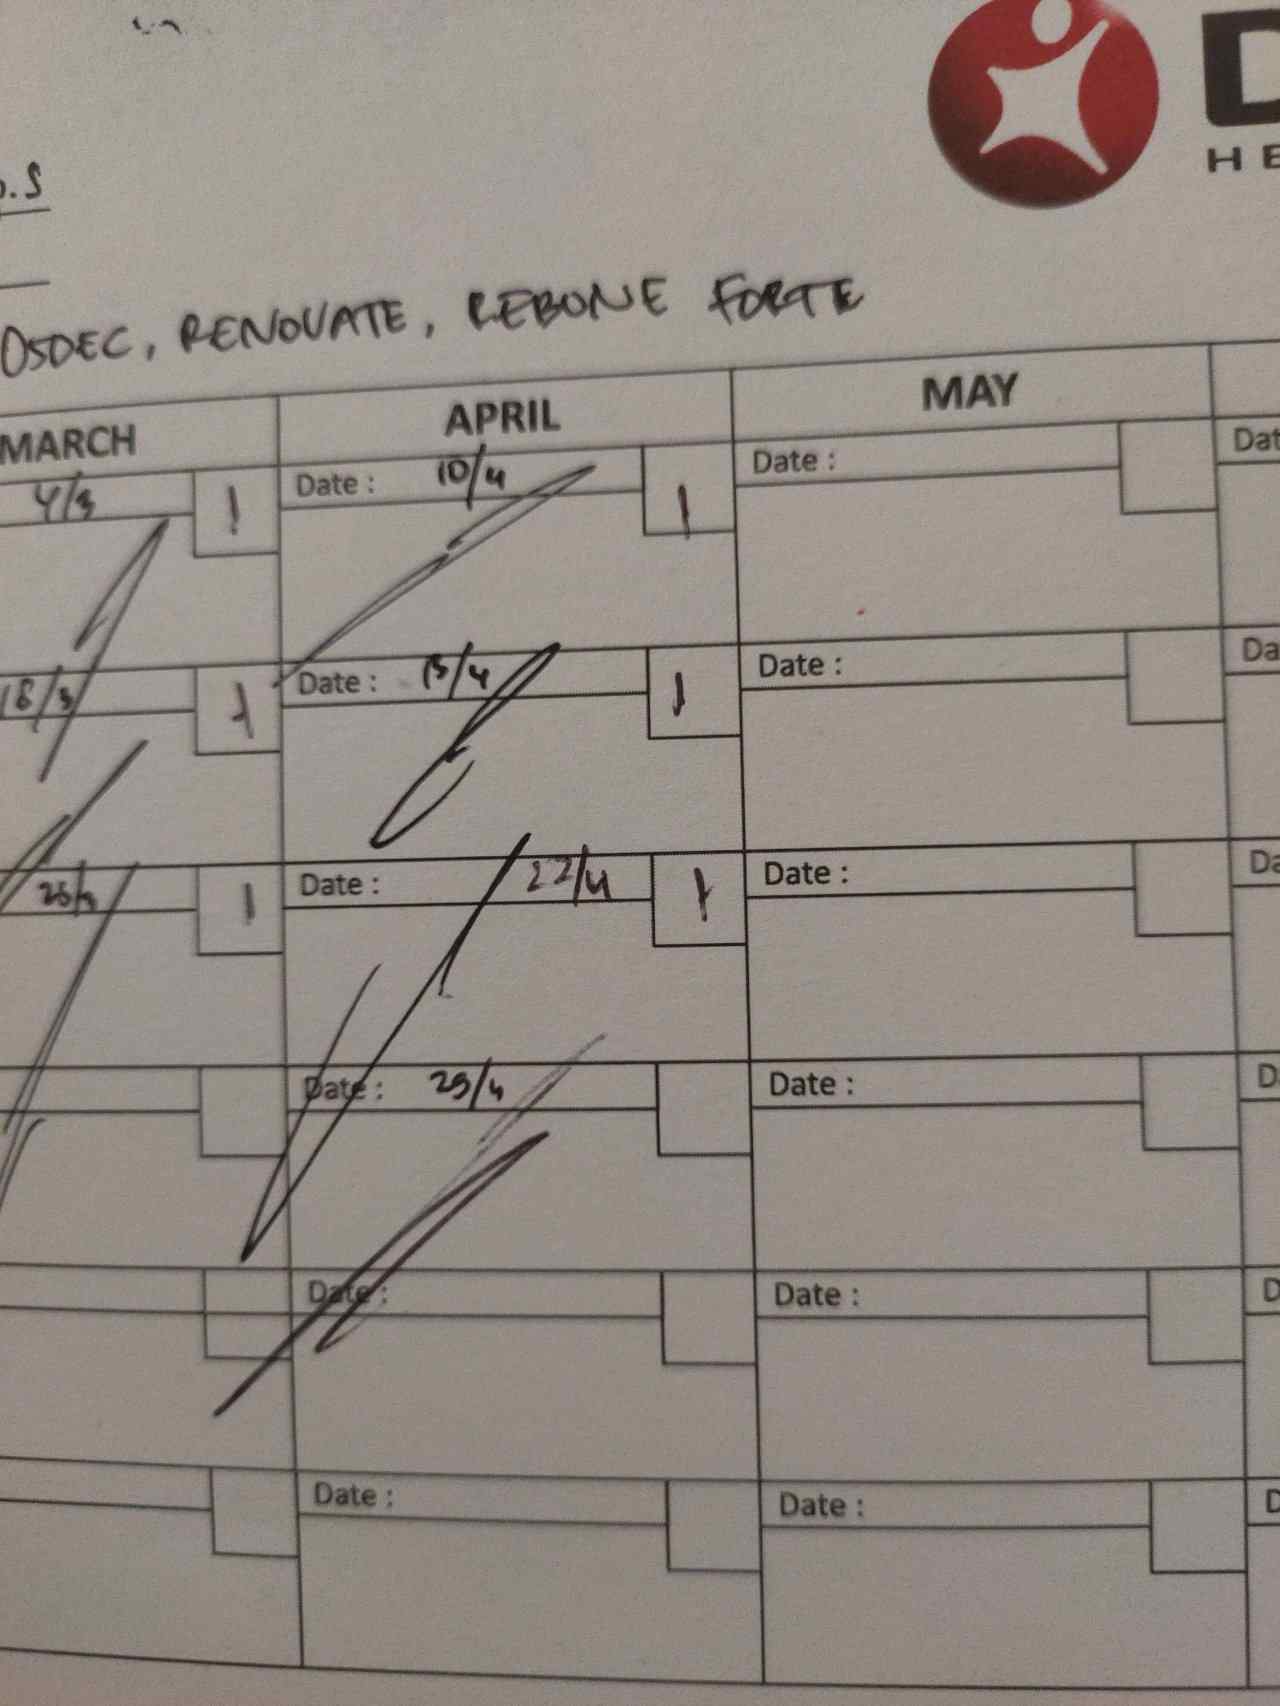 D
HE
OSDEC, RENOVATE, REBONE FORTE
MARCH APRIL MAY
4/3 1 Date : 10/4 1 Date : Dat
18/3 1 Date : 15/4 1 Date : Da
25/3 1 Date : 22/4 1 Date : Da
Date : 29/4 Date : D
Date : Date : D
Date : Date : D